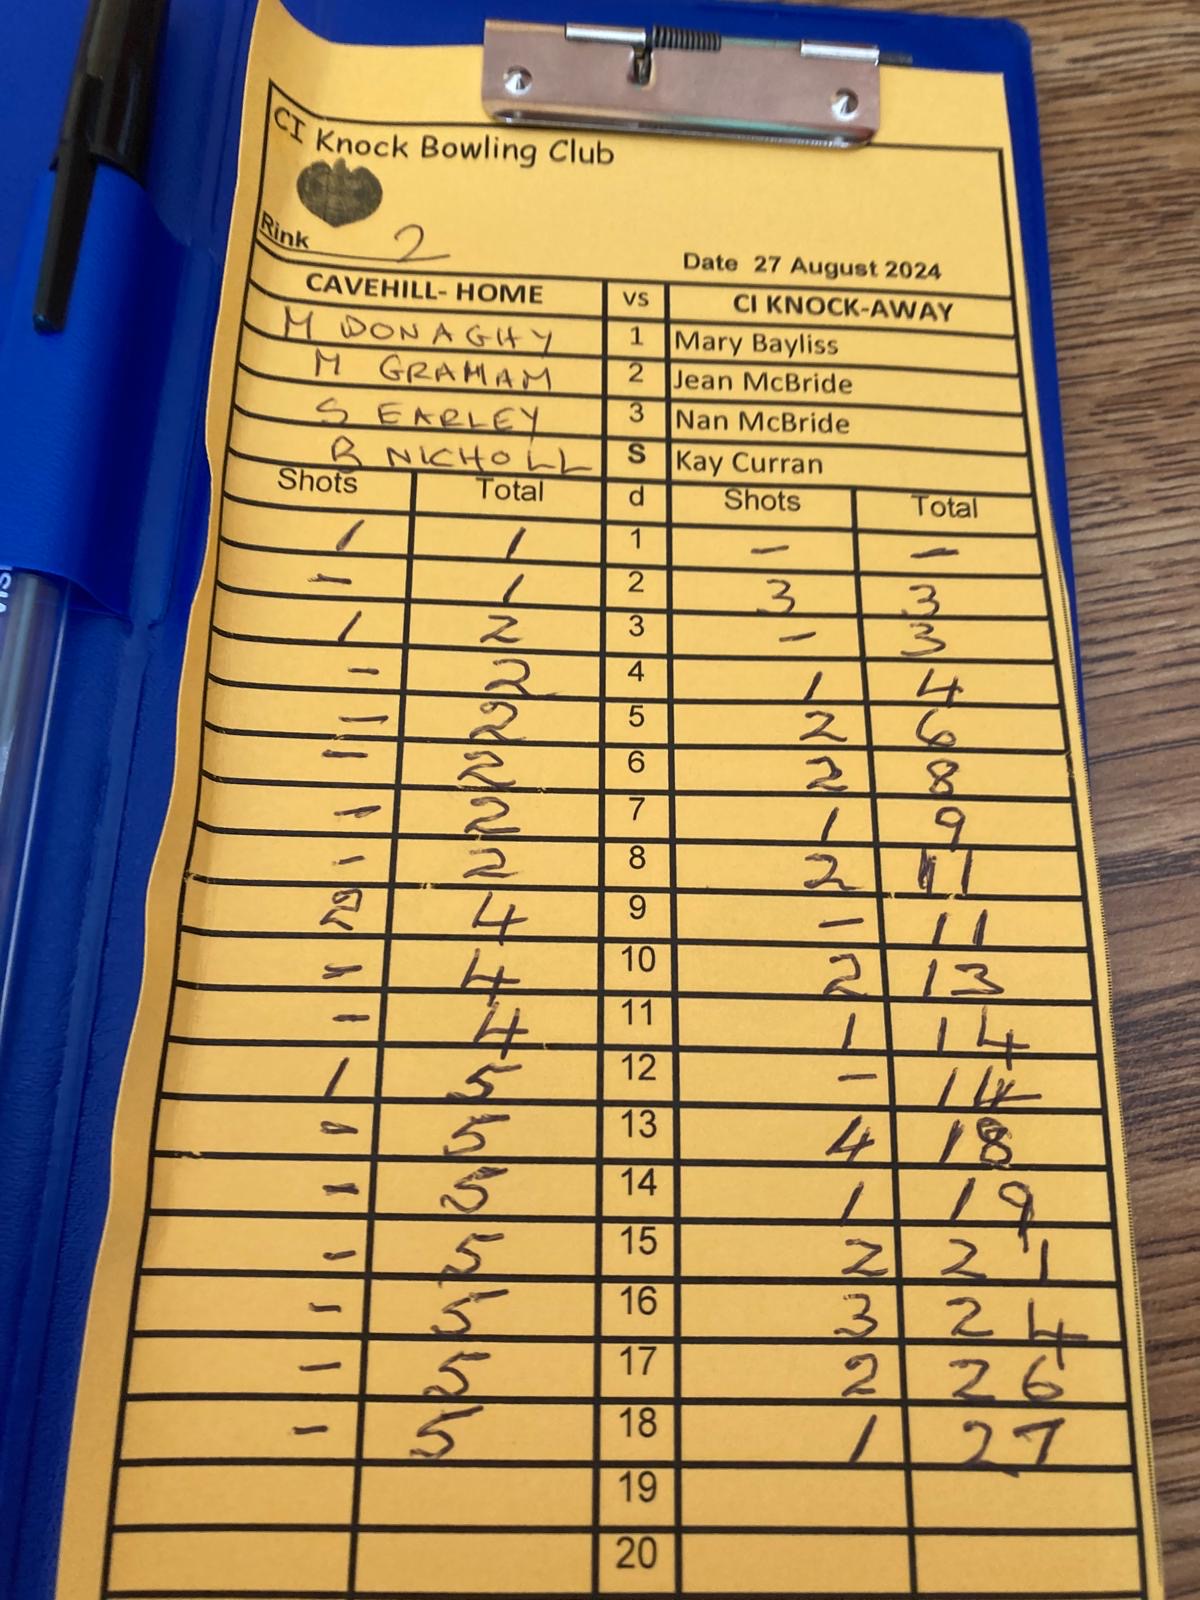 CI Knock Bowling Club
Rink 2
Date 27 August 2024
CAVEHILL- HOME vs CI KNOCK-AWAY
M DONAGHY 1 Mary Bayliss
M GRAHAM 2 Jean McBride
S EARLEY 3 Nan McBride
B NICHOLL S Kay Curran
Shots Total d Shots Total
1 1 1 - -
- 1 2 3 3
1 2 3 - 3
- 2 4 1 4
- 2 5 2 6
- 2 6 2 8
- 2 7 1 9
- 2 8 2 11
2 4 9 - 11
- 4 10 2 13
- 4 11 1 14
1 5 12 - 14
- 5 13 4 18
- 5 14 1 19
- 5 15 2 21
- 5 16 3 24
- 5 17 2 26
- 5 18 1 27
19
20